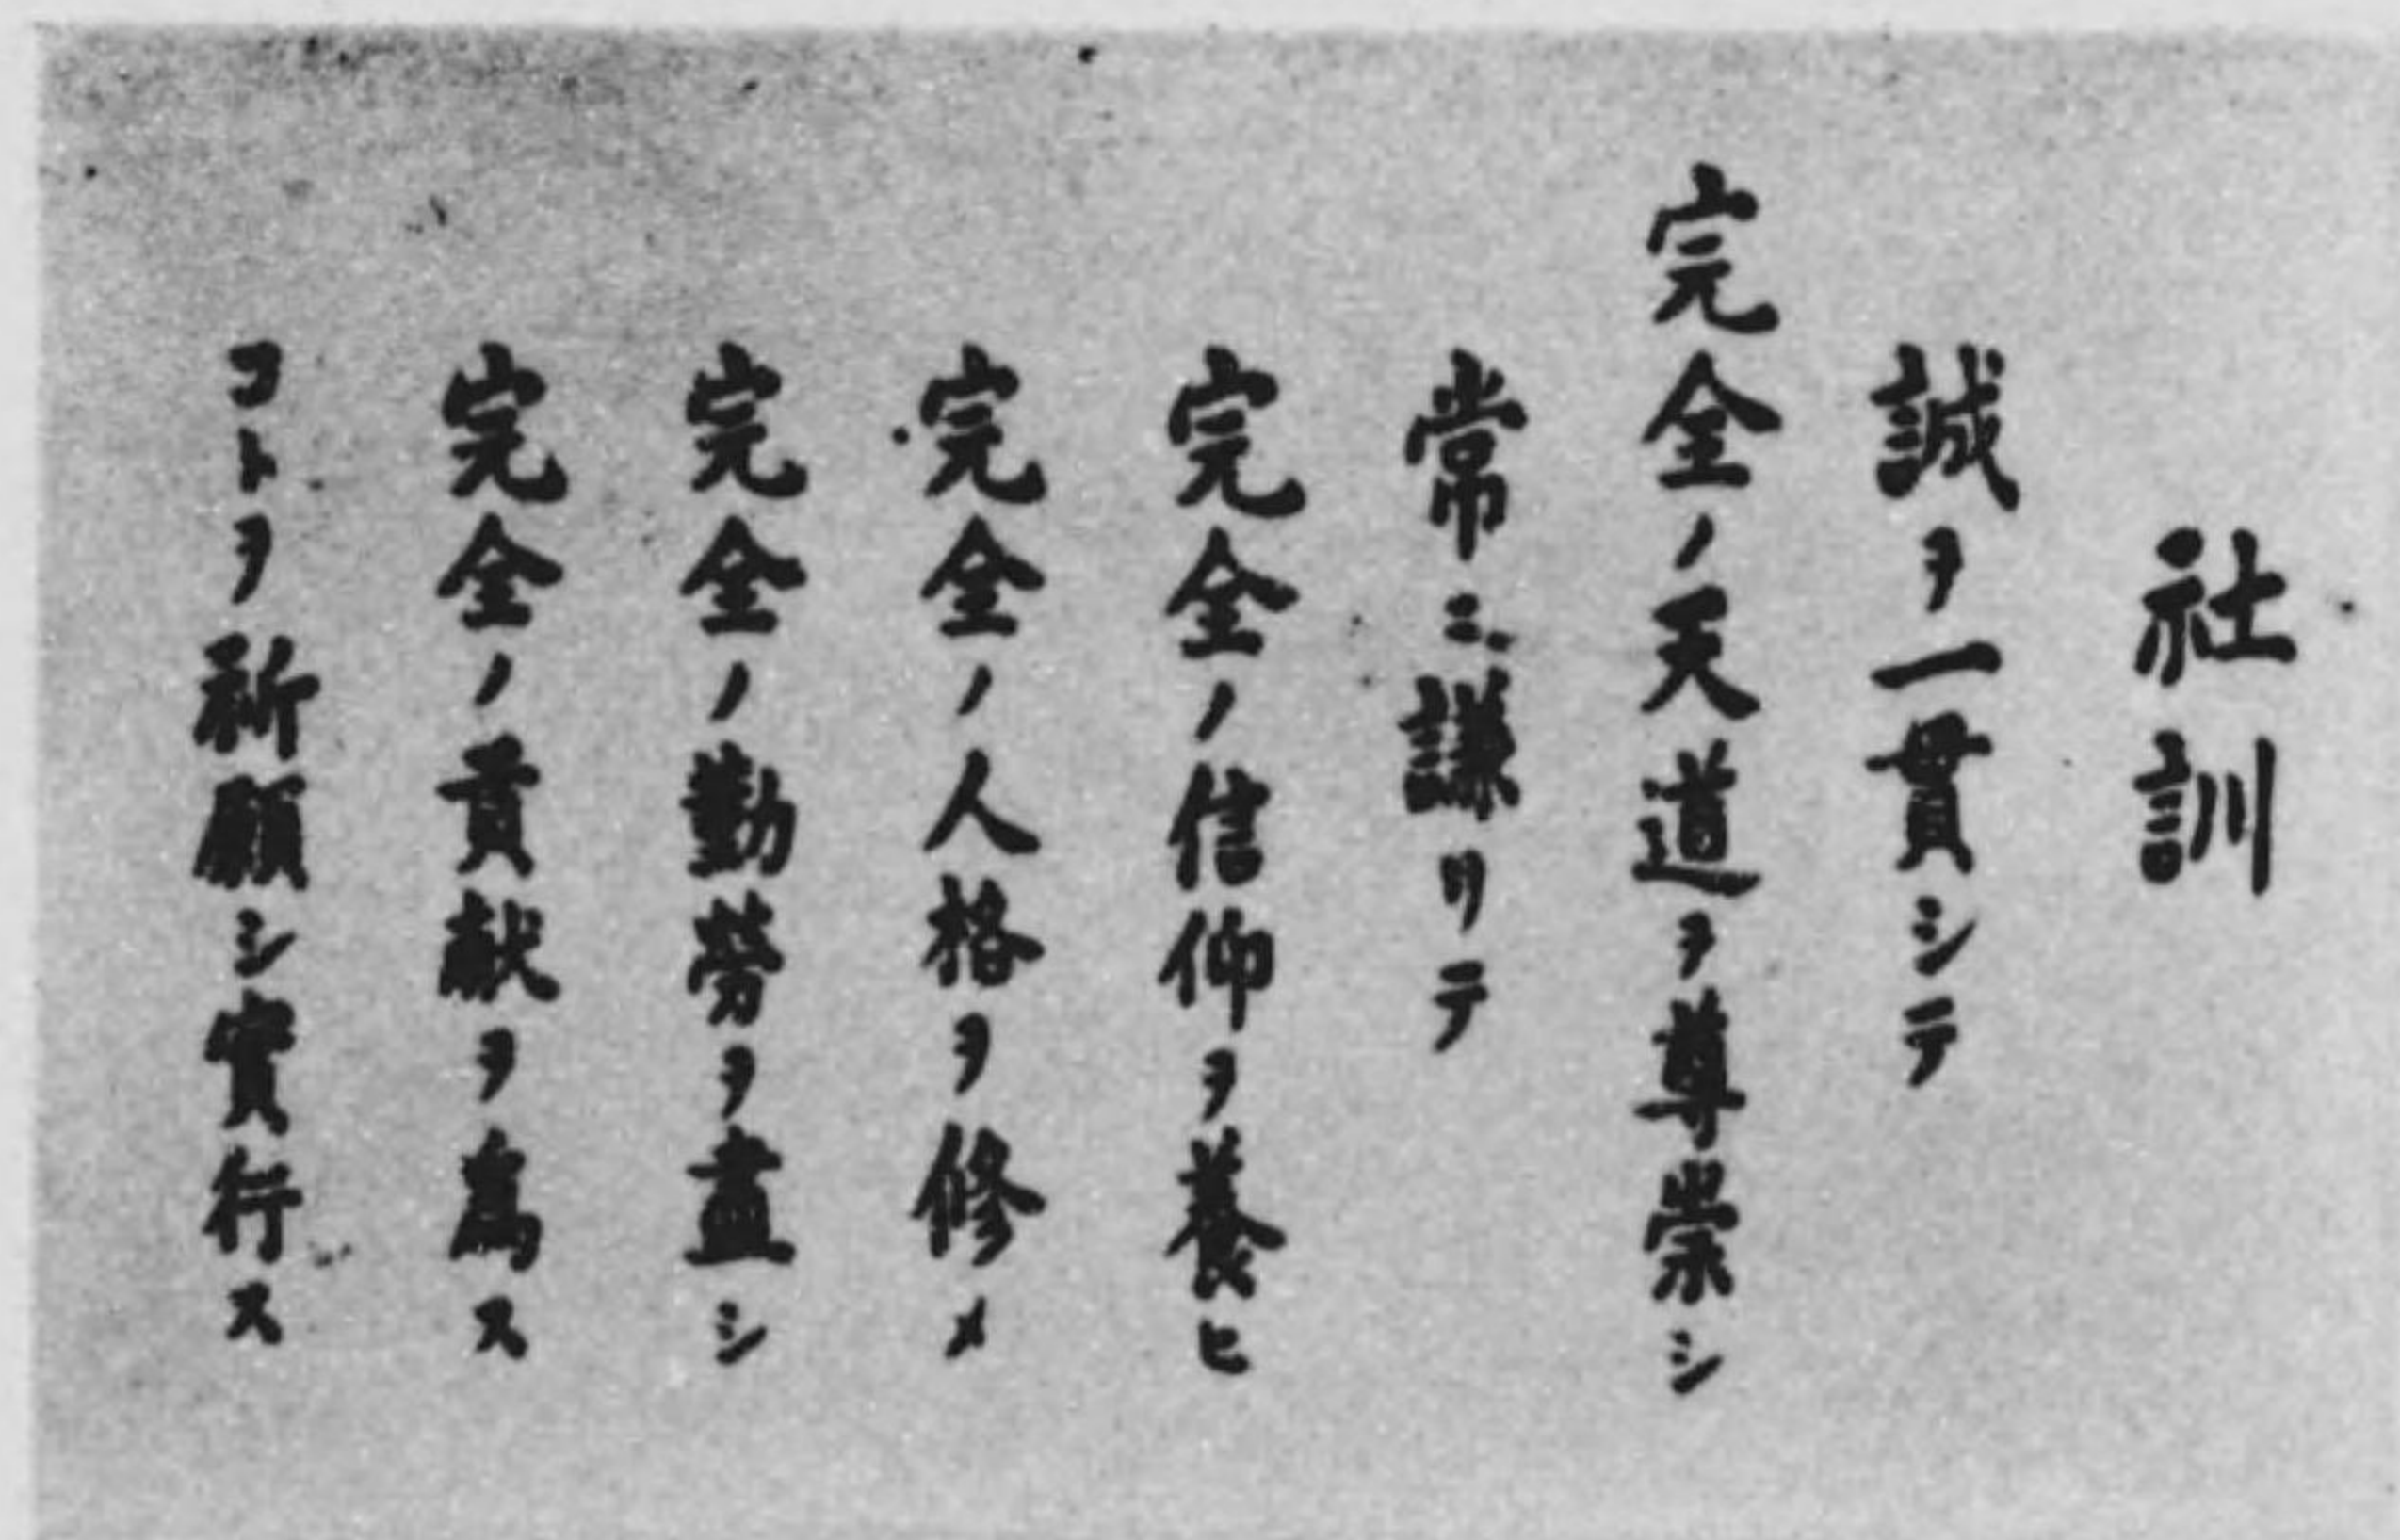 社訓
誠ヲ一貫シテ
完全ノ天道ヲ尊崇シ
常ニ謙リテ
完全ノ信仰ヲ養ヒ
完全ノ人格ヲ修メ
完全ノ勤勞ヲ盡シ
完全ノ貢献ヲ為ス
コトヲ祈願シ實行ス